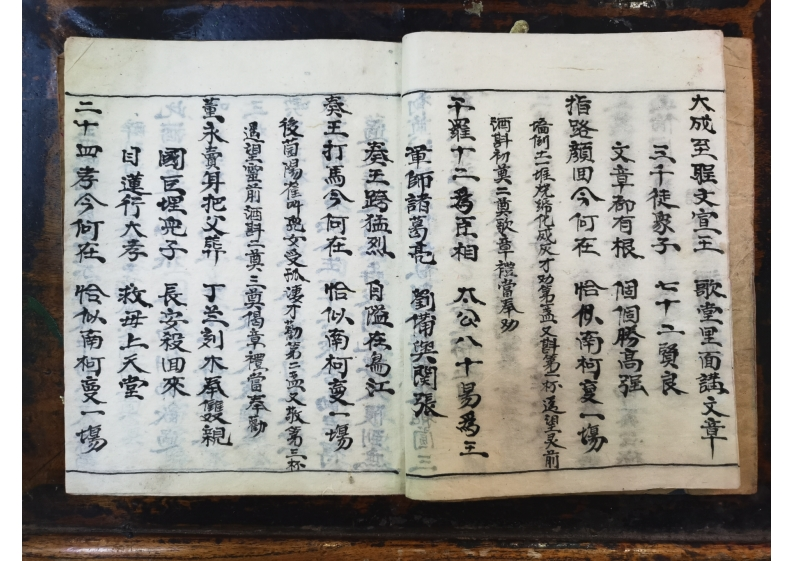 大成至聖文宣王 歌堂里面講文章
三千徒衆子 七十二賢良
文章都有根 個個勝高強
指路顔回今何在 恰似南柯夢一場
儀倒土堆 成灰才劝第二盃又斟第一杯遥望灵前
洒斟初奠二奠歌章禮當奉劝
干羅十二為臣相 太公八十遇為王
軍師諸葛亮 劉備與関張
奏王跨猛烈 自隘在烏江
奏王打馬今何在 恰似南柯夢一場
後園陽雀叫 兒女受孤凄才勸第二盃又敬第三杯
遥望靈前洒斟二奠三奠偈章禮當奉勸
董永賣身把父葬 丁兰刻木奉雙親
國巨埋兒子 長安殺回來
目蓮行大孝 救母上天堂
二十四孝今何在 恰似南柯夢一場